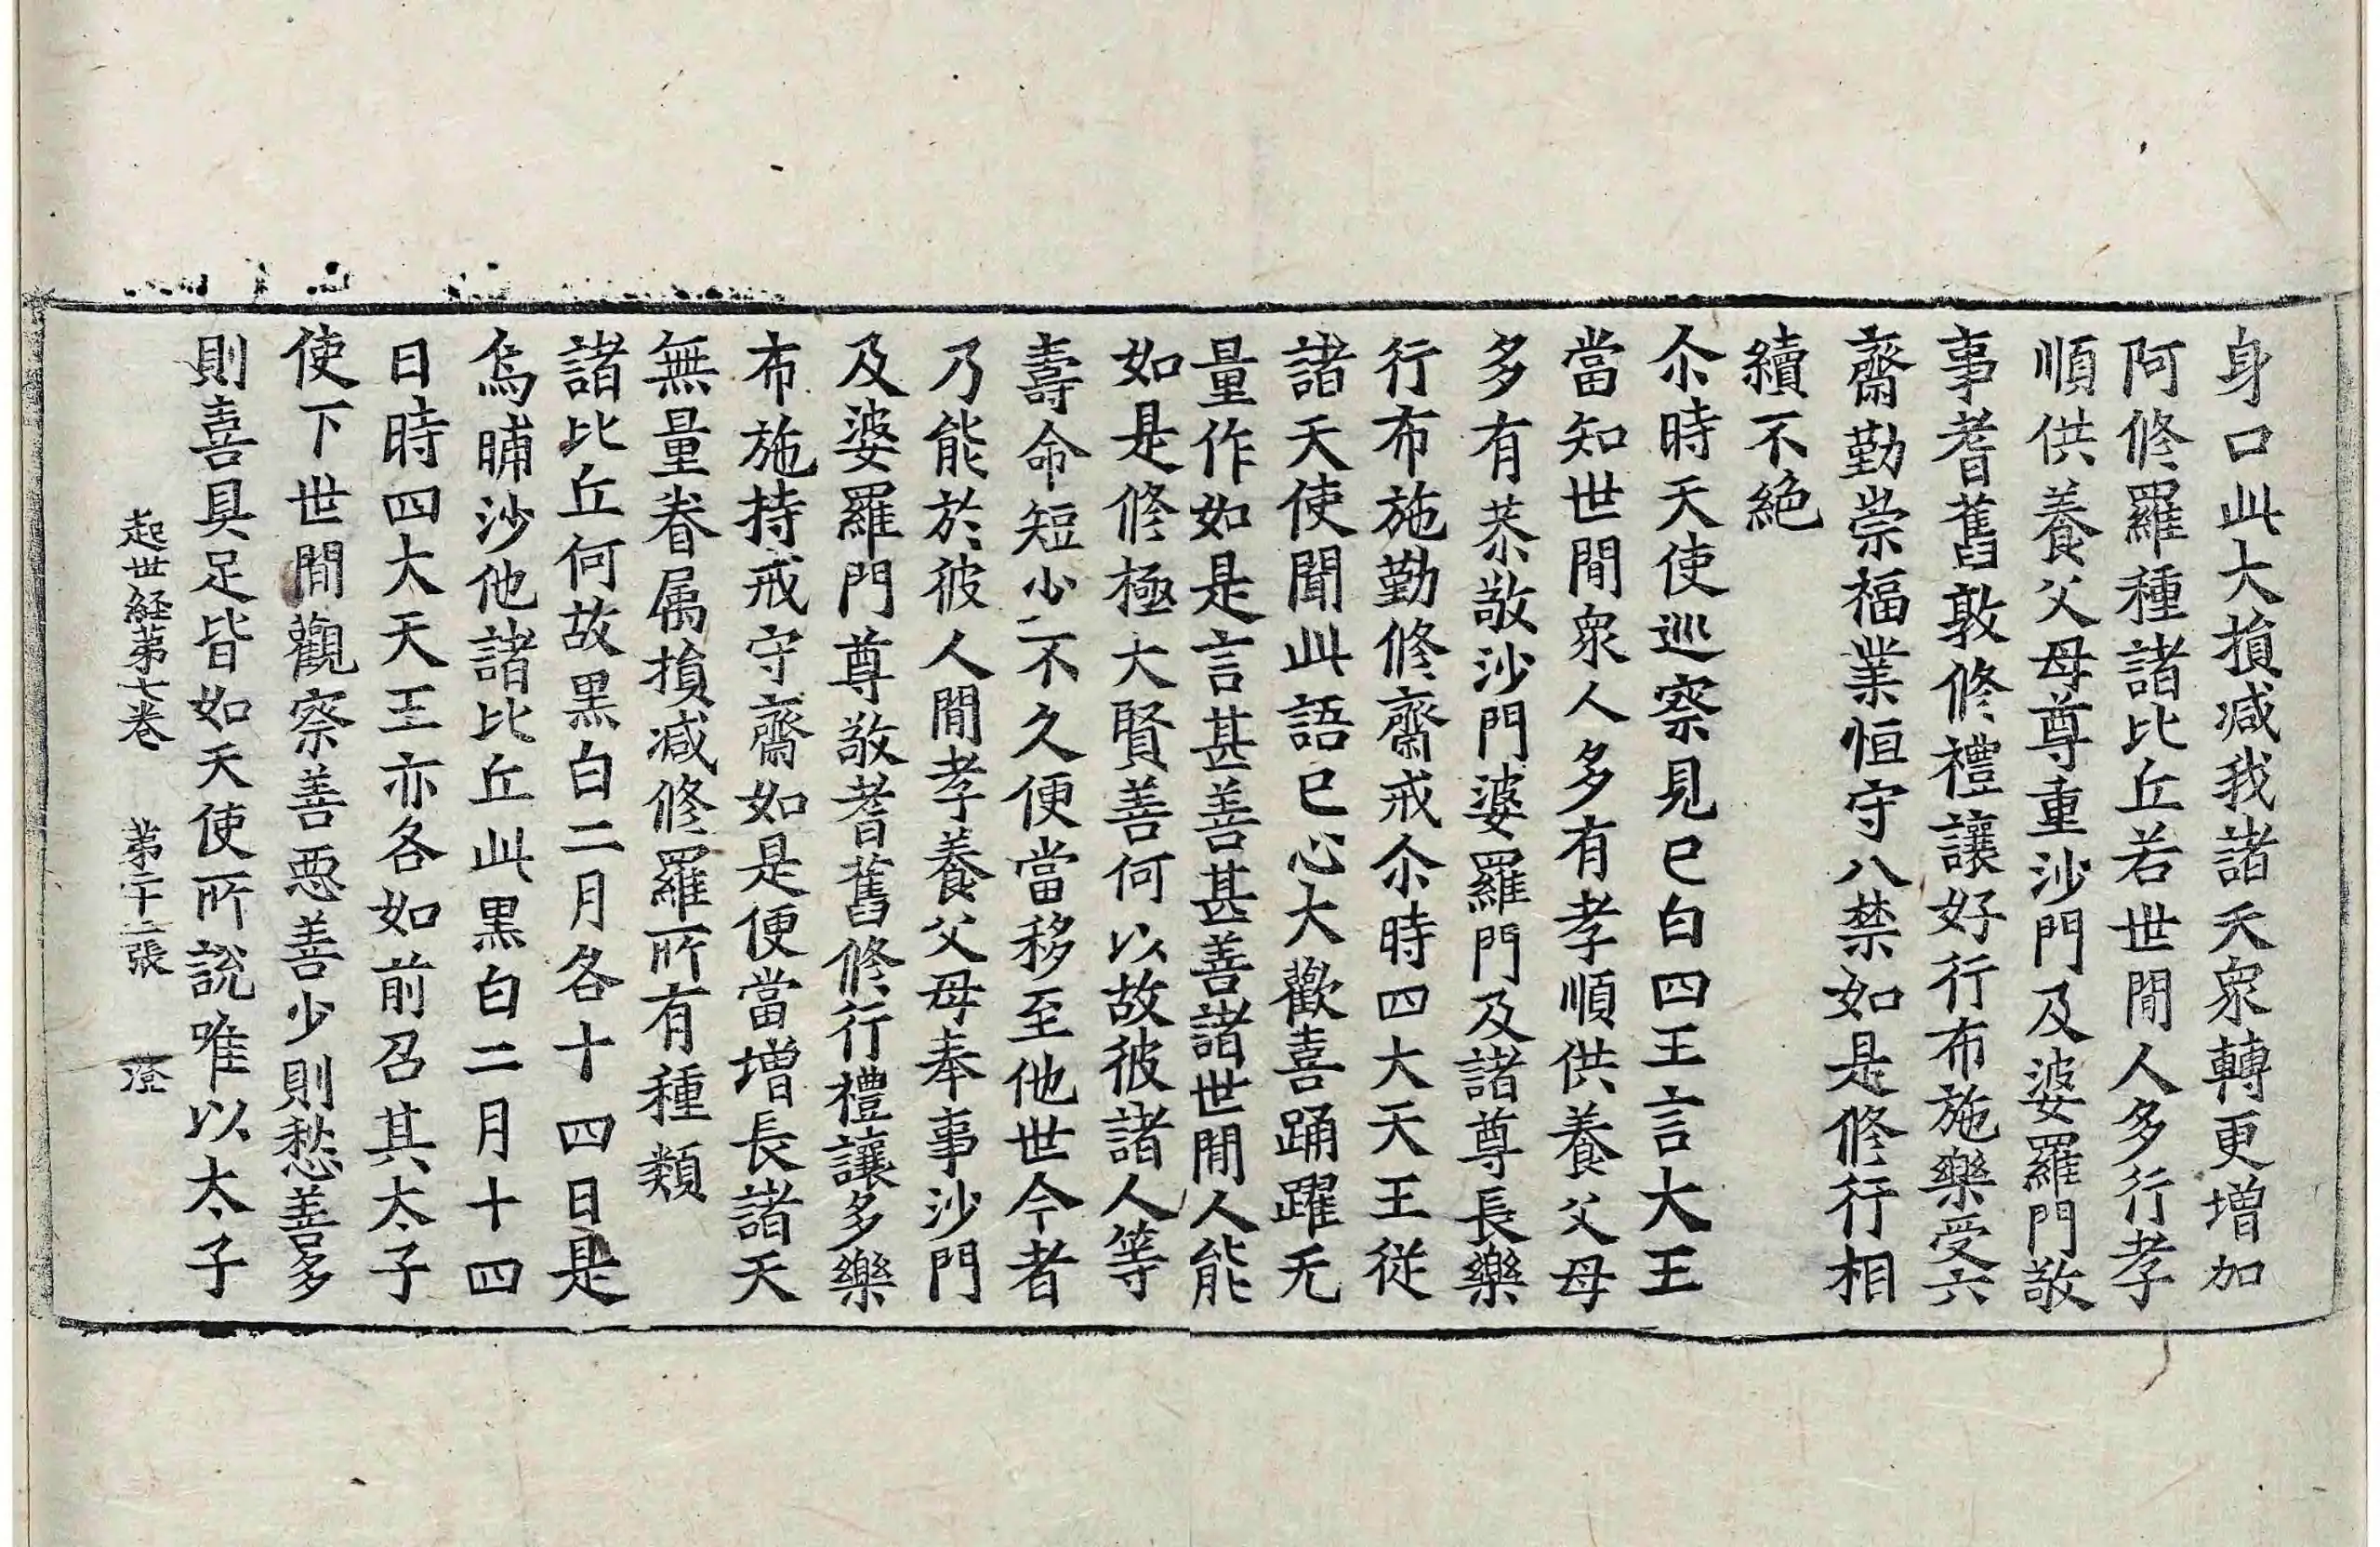 身口此大損减我諸天衆轉更增加
阿修羅種諸比丘若世間人多行孝
順供養父母尊重沙門及婆羅門敬
事耆舊敦修禮讓好行布施樂受六
齋勤崇福業恒守八禁如是修行相
續不絶
尒時天使巡察見已白四王言大王
當知世間衆人多有孝順供養父母
多有恭敬沙門婆羅門及諸尊長樂
行布施勤修齋戒尒時四大天王從
諸天使聞此語已心大歡喜踊躍无
量作如是言甚善甚善諸世間人能
如是修極大賢善何以故彼諸人等
壽命短少不久便當移至他世今者
乃能於彼人間孝養父母奉事沙門
及婆羅門尊敬耆舊修行禮讓多樂
布施持戒守齋如是便當增長諸天
無量眷属損减修羅所有種類
諸比丘何故黒白二月各十四日是
烏晡沙他諸比丘此黒白二月十四
日時四大天王亦各如前召其太子
使下世間觀察善惡善少則愁善多
則喜具足皆如天使所說唯以太子
起世経第七巻 第二十二張 澄